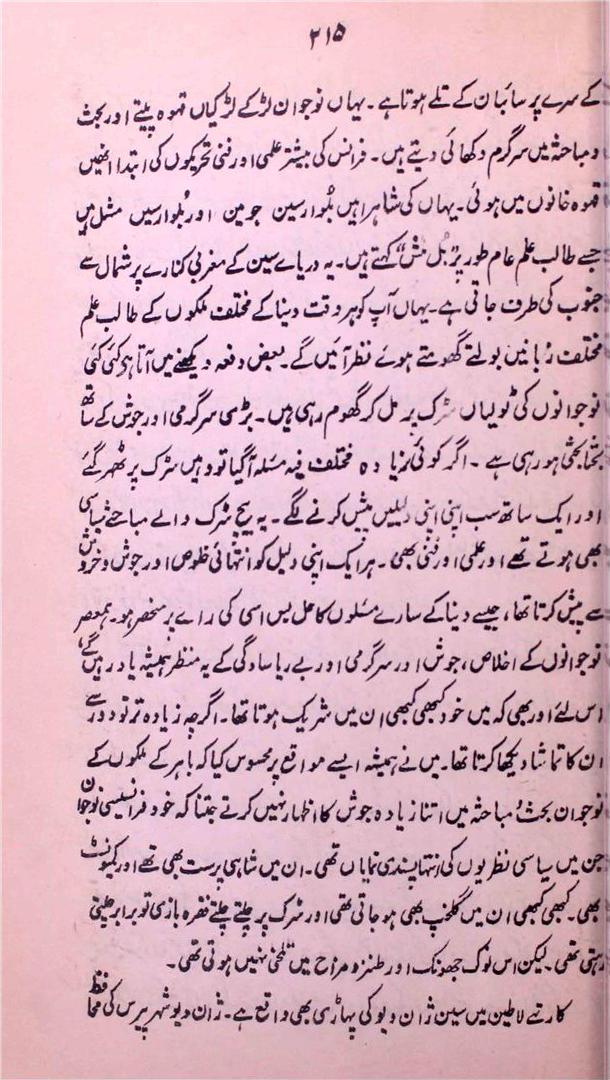 ۲۱۵
کے سرے پر سائبان کے تلے ہوتا ہے۔ یہاں نوجوان لڑکے لڑکیاں قہوہ پیتے اور بحث
و مباحثہ میں سرگرم دکھائی دیتے ہیں۔ فرانس کی بیشتر علمی اور فنی تحریکوں کی ابتدا انھیں
قہوہ خانوں میں ہوئی۔ یہاں کی شاہراہیں بلوارسین جرمین اور بلوارسیں مشل ہیں
جسے طالب علم عام طور پر "بل مش" کہتے ہیں۔ یہ دریاے سین کے مغربی کنارے پر شمال سے
جنوب کی طرف جاتی ہے۔ یہاں آپ کو ہر وقت دینا کے مختلف ملکوں کے طالب علم
مختلف زبانیں بولتے گھومتے ہوئے نظر آئیں گے۔ بعض دفعہ دیکھنے میں آتا ہے کئی کئی
نوجوانوں کی ٹولیاں سڑک پر مل کر گھوم رہی ہیں۔ بڑی سرگرمی اور جوش کے ساتھ
بحثا بحثی ہو رہی ہے۔ اگر کوئی زیادہ مختلف فیہ مسئلہ آگیا تو وہیں سڑک پر ٹھہر گئے
اور ایک ساتھ سب اپنی اپنی دلیلیں پیش کرنے لگے۔ یہ بیچ سڑک والے مباحثے سیاسی
بھی ہوتے تھے اور علمی اور فنی بھی۔ ہر ایک اپنی دلیل کو انتہائی خلوص اور جوش و خروش
سے پیش کرتا تھا، جیسے دینا کے سارے مسئلوں کا حل بس اسی کی راے پر منحصر ہو۔ ہمعصر
نوجوانوں کے اخلاص، جوش اور سرگرمی اور بے ریا سادگی کے یہ منظر ہمیشہ یاد رہیں گے،
اس لئے اور بھی کہ میں خود کبھی کبھی ان میں شریک ہوتا تھا۔ اگرچہ زیادہ تر تو دور سے
ان کا تماشا دیکھا کرتا تھا۔ میں نے ہمیشہ ایسے مواقع پر محسوس کیا کہ باہر کے ملکوں کے
نوجوان بحث و مباحثہ میں اتنا زیادہ جوش کا اظہار نہیں کرتے جتنا کہ خود فرانسیسی نوجوان
جن میں سیاسی نظریوں کی انتہا پسندی نمایاں تھی۔ ان میں شاہی پرست بھی تھے اور کمیونسٹ
بھی۔ کبھی کبھی ان میں گلخپ بھی ہو جاتی تھی اور سڑک پر چلتے چلتے فقرہ بازی تو برابر چلتی
رہتی تھی۔ لیکن اس نوک جھونک اور طنز و مزاح میں تلخی نہیں ہوتی تھی۔
کارتے لاطین میں سین ژان ویو کی پہاڑی بھی واقع ہے۔ ژان ویو شہر پیرس کی محافظ